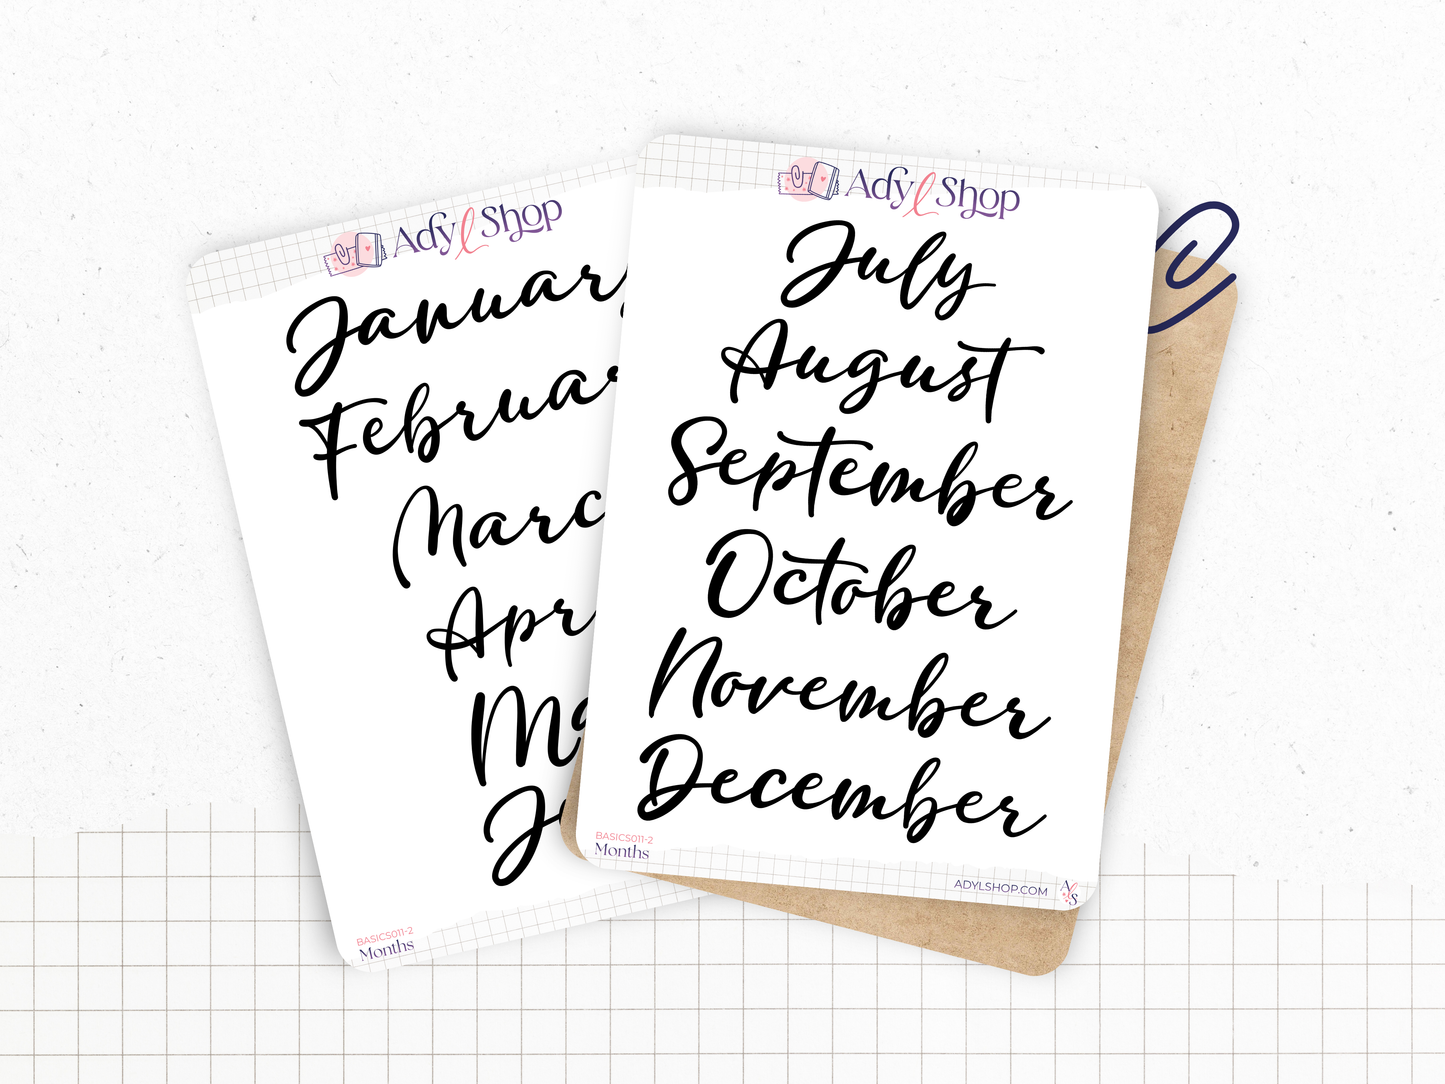 Ady l Shop
Januar
Februar
Marc
Apr
Ma
J
BASICS011-2
Months
Ady l Shop
July
August
September
October
November
December
BASICS011-2
Months
ADYLSHOP.COM
A l S